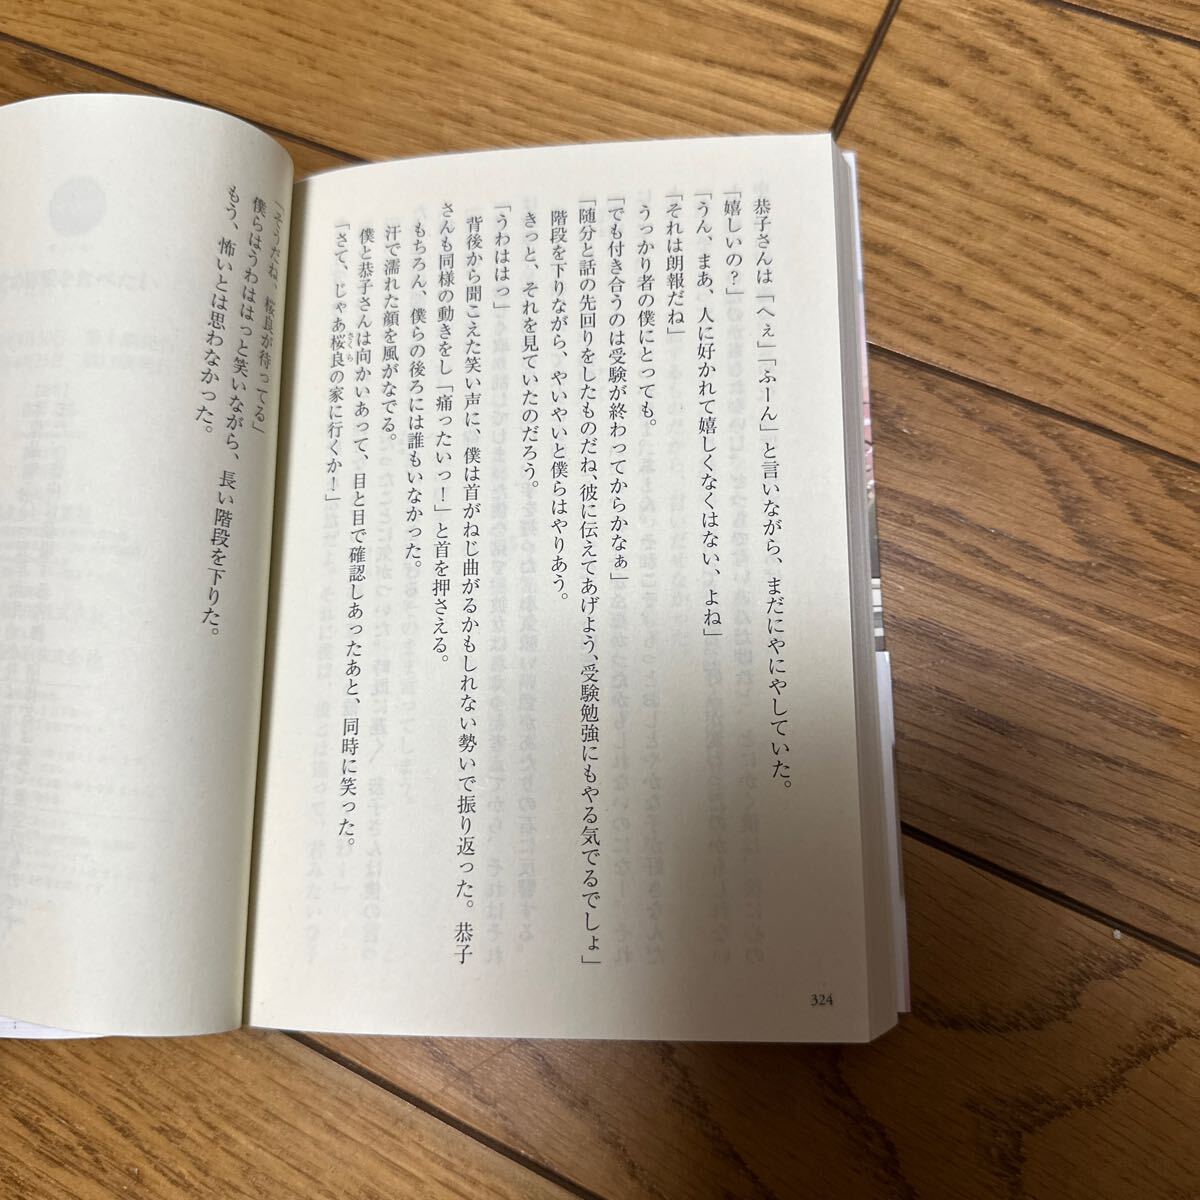 恭子さんは「へぇ」「ふーん」と言いながら、まだにやにやしていた。
「嬉しいの?」
「うん、まあ、人に好かれて嬉しくなくはない、よね」
「それは朗報だね」
うっかり者の僕にとっても。
「でも付き合うのは受験が終わってからかなぁ」
「随分と話の先回りをしたものだね、彼に伝えてあげよう、受験勉強にもやる気でるでしょ」
階段を下りながら、やいやいと僕らはやりあう。
きっと、それを見ていたのだろう。
「うわははっ」
背後から聞こえた笑い声に、僕は首がねじ曲がるかもしれない勢いで振り返った。恭子
さんも同様の動きをし「痛ったいっ!」と首を押さえる。
もちろん、僕らの後ろには誰もいなかった。
汗で濡れた顔を風がなでる。
僕と恭子さんは向かいあって、目と目で確認しあったあと、同時に笑った。
「さて、じゃあ桜良の家に行くか!」
さくら
324
「そうだね、桜良が待ってる」
僕らはうわははっと笑いながら、長い階段を下りた。
もう、怖いとは思わなかった。